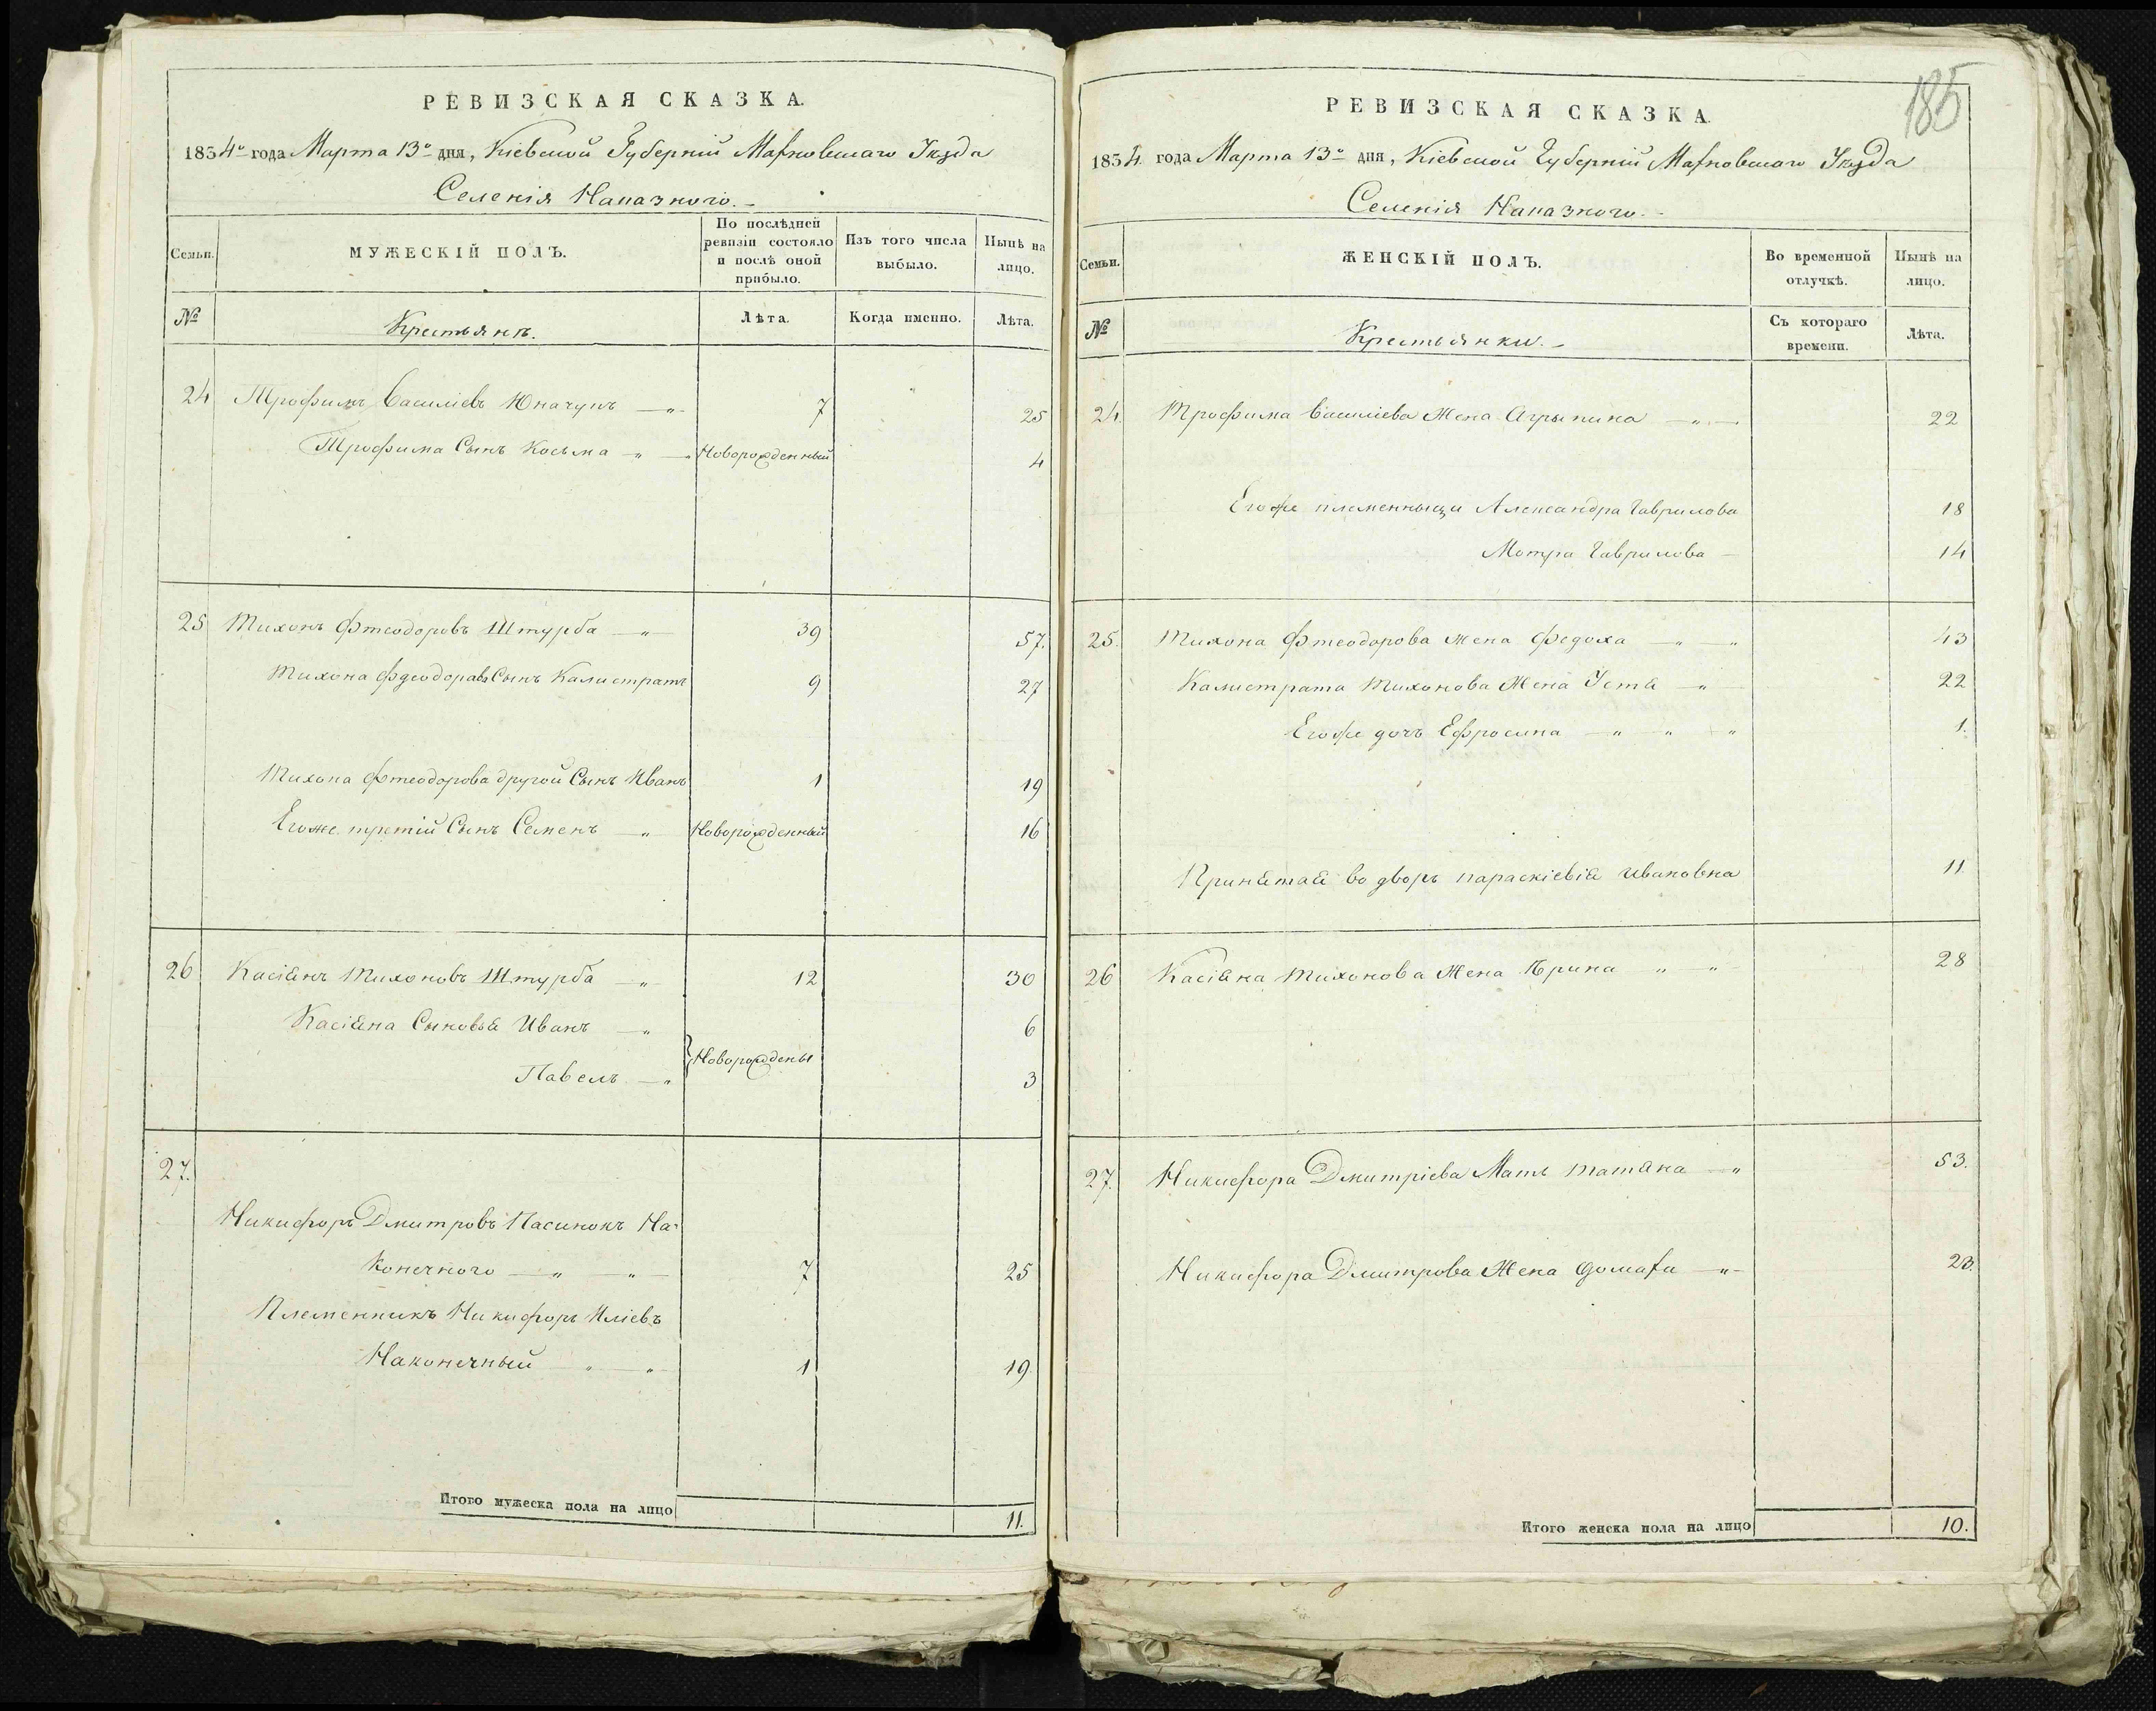 РЕВИЗСКАЯ СКАЗКА.
1834го года Марта 13о дня, Кіевской Губерніи Махновскаго Уѣзда
Селенія Наказного.
Семьи.
МУЖЕСКІЙ ПОЛЪ.
По послѣдней ревизіи состояло и послѣ оной прибыло.
Изъ того числа выбыло.
Нынѣ на лицо.
№
Крестьянъ.
Лѣта.
Когда именно.
Лѣта.
24 Трофимъ Василіевъ 7 25
Трофима Сынъ Косьма Новорожденный 4
25 Тихонъ Фтеодоровъ Штурба 39 57.
Тихона Фдеодорова Сынъ Калистратъ 9 27
Тихона Фтеодорова другой Сынъ Иванъ 1 19
Егоже третій Сынъ Семенъ Новорожденный 16
26 Касіянъ Тихоновъ Штурба 12 30
Касіяна Сыновья Иванъ 6
Новорождены
Павелъ 3
27.
Никифоръ Дмитровъ Пасинокъ На-
конечного 7 25
Племенникъ Никифоръ Иліевъ
Наконечный 1 19
Итого мужеска пола на лицо 11.
185
РЕВИЗСКАЯ СКАЗКА.
1834 года Марта 13о дня, Кіевской Губерніи Махновскаго Уѣзда
Селенія Наказного.
Семьи.
ЖЕНСКІЙ ПОЛЪ.
Во временной отлучкѣ.
Нынѣ на лицо.
№
Крестьянки.
Съ котораго времени.
Лѣта.
24. Трофима Василіева Жена Агрыпина 22
Егоже племенныци Александра Гаврилова 18
Мотра Гаврилова 14
25. Тихона Фтеодорова жена Федоха 43
Калистрата Тихонова Жена Устя 22
Егоже дочъ Ефросина 1.
Принятая во дворъ параскіевія Ивановна 11
26 Касіяна Тихонова Жена Ѣрина 28
27. Никифора Дмитріева Мать татяна 53.
Никифора Дмитрова Жена домаха 23.
Итого женска пола на лицо 10.